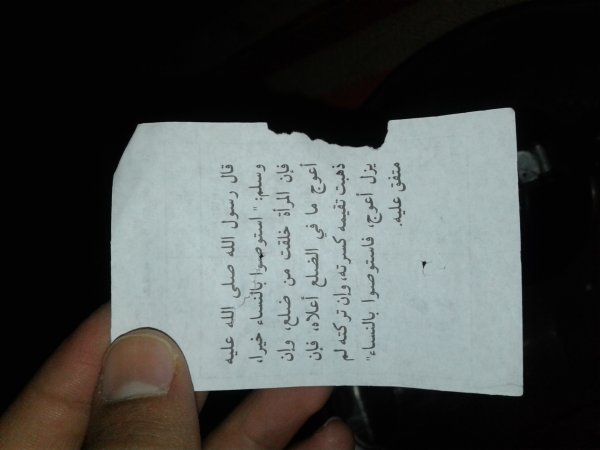 قال رسول الله صلى الله عليه
وسلم: "استوصوا بالنساء خيرا،
فإن المرأة خلقت من ضلع، وإن
أعوج ما في الضلع أعلاه، فإن
ذهبت تقيمه كسرته، وإن تركته لم
يزل أعوج، فاستوصوا بالنساء"
متفق عليه.